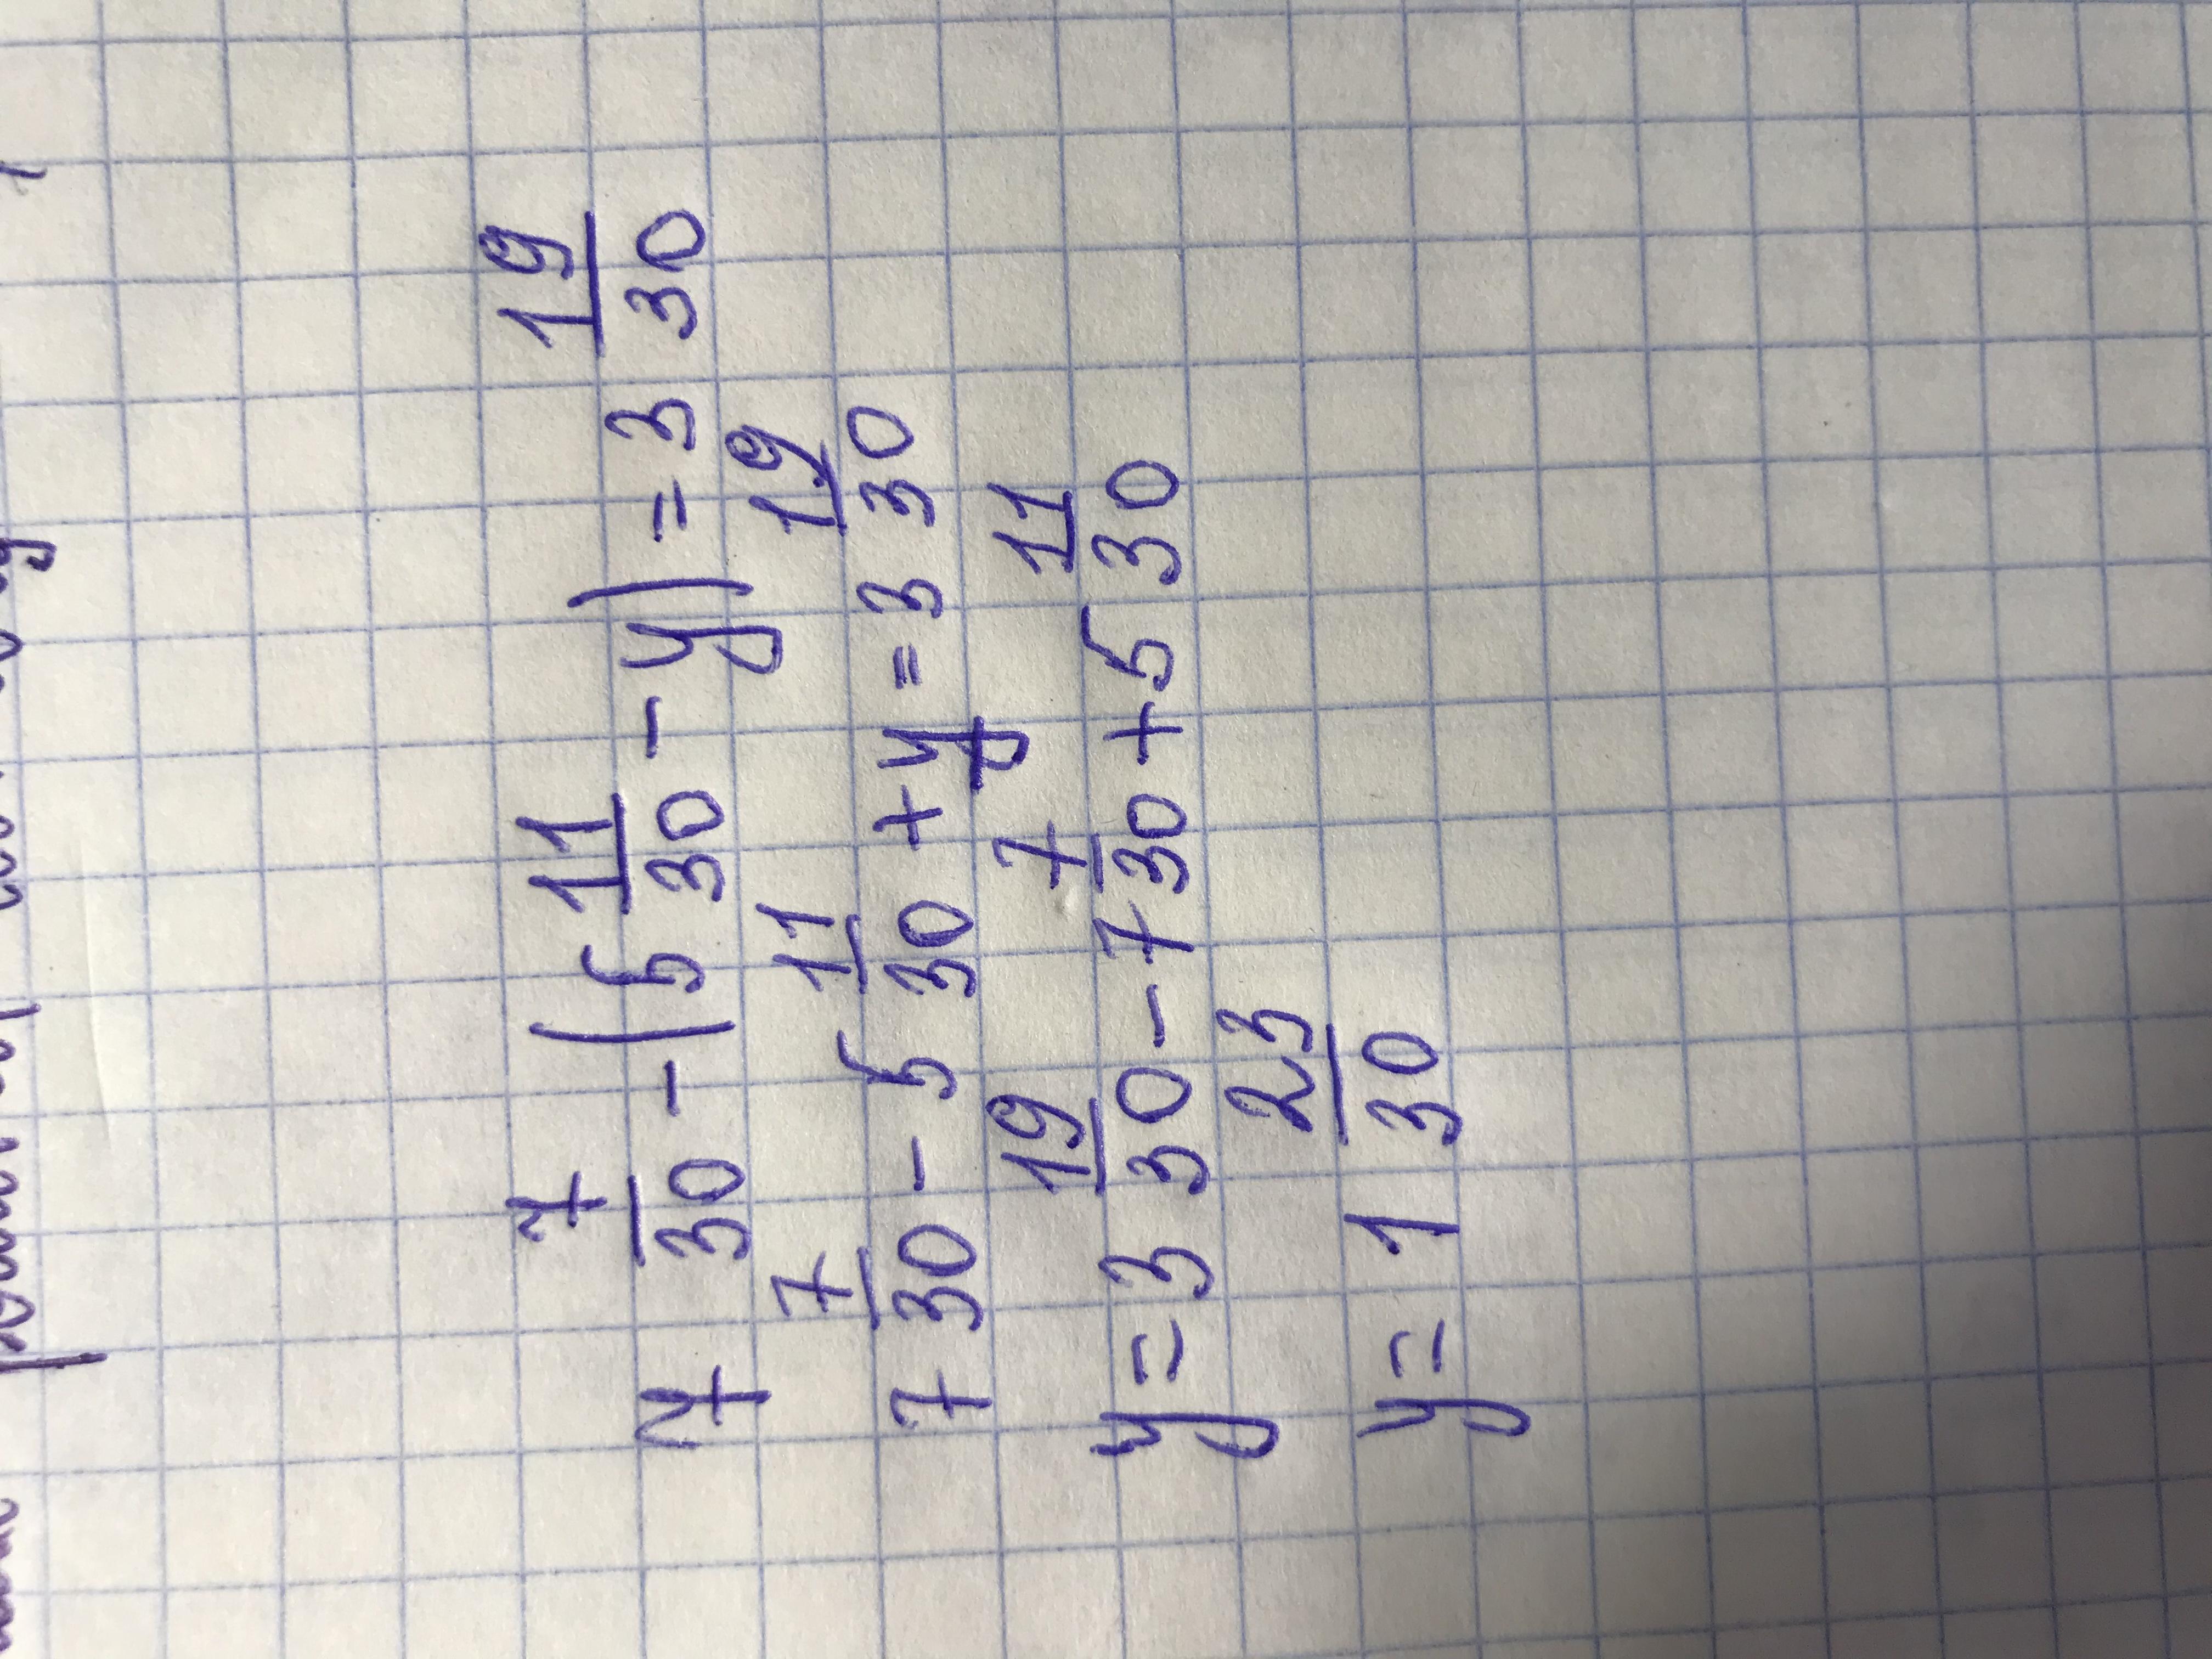 7 7/30 - (5 11/30 - y) = 3 19/30
7 7/30 - 5 11/30 + y = 3 19/30
y = 3 19/30 - 7 7/30 + 5 11/30
y = 1 23/30